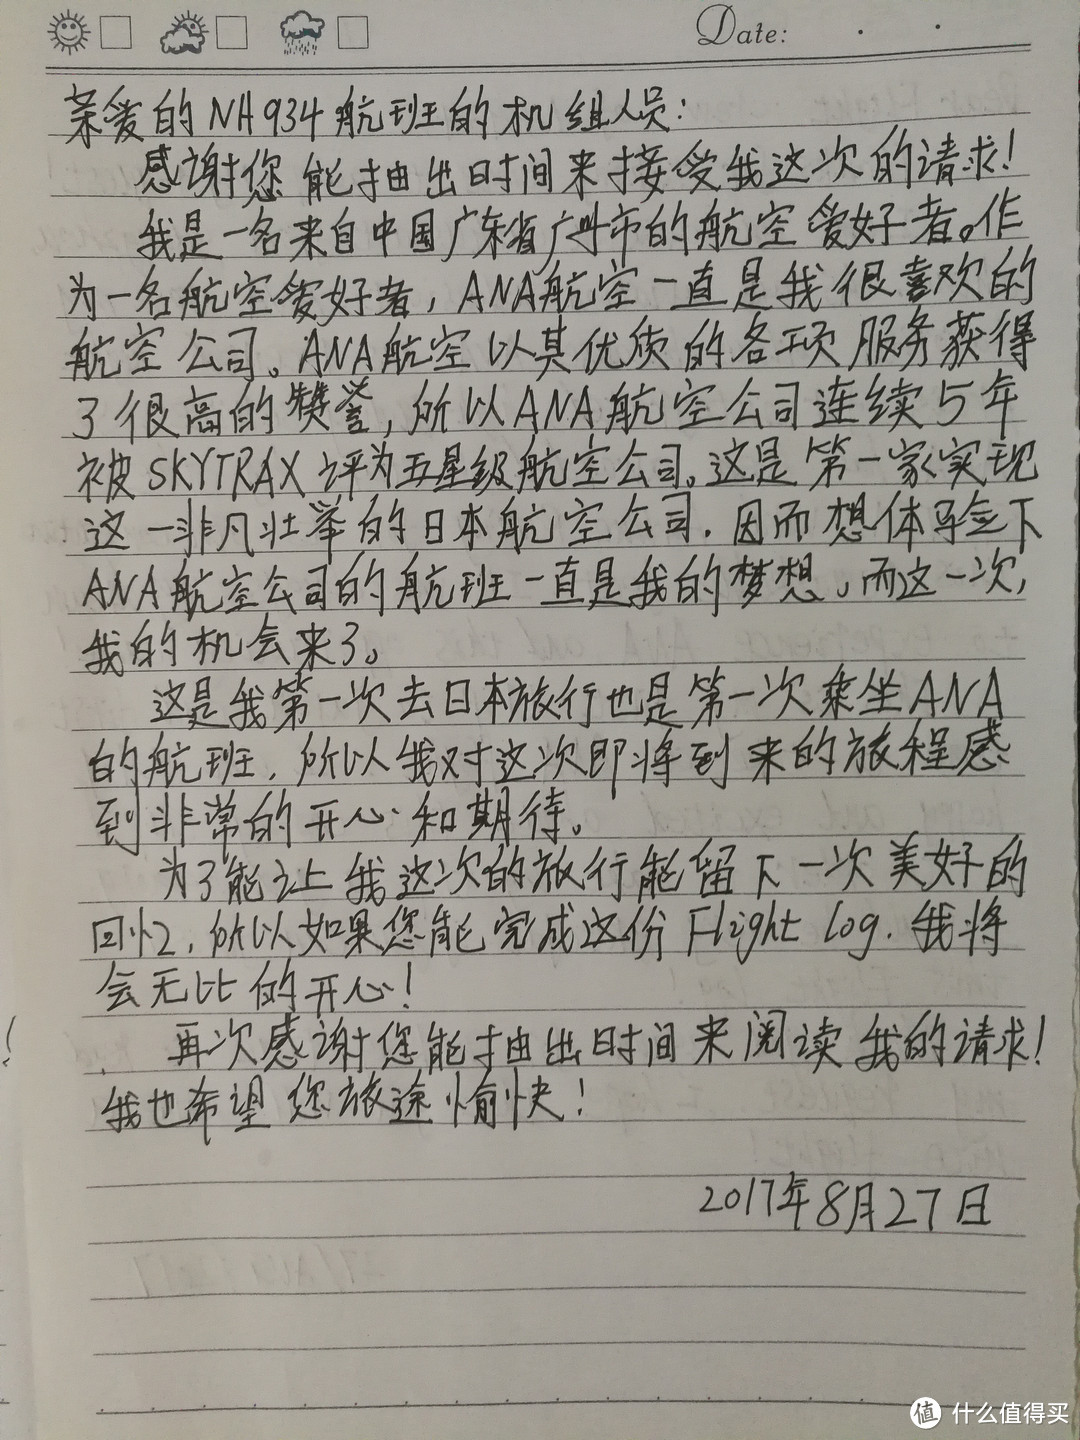 Date:
亲爱的NH934航班的机组人员:
感谢您能抽出时间来接受我这次的请求!
我是一名来自中国广东省广州市的航空爱好者。作
为一名航空爱好者,ANA航空一直是我很喜欢的
航空公司。ANA航空以其优质的各项服务获得
了很高的赞誉,所以ANA航空公司连续5年
被SKYTRAX评为五星级航空公司。这是第一家实现
这一非凡壮举的日本航空公司.因而想体验下
ANA航空公司的航班一直是我的梦想。而这一次,
我的机会来了。
这是我第一次去日本旅行也是第一次乘坐ANA
的航班,所以我对这次即将到来的旅程感
到非常的开心和期待。
为了能让我这次的旅行能留下一次美好的
回忆,所以如果您能完成这份Flight log.我将
会无比的开心!
再次感谢您能抽出时间来阅读我的请求!
我也希望您旅途愉快!
2017年8月27日
值 什么值得买